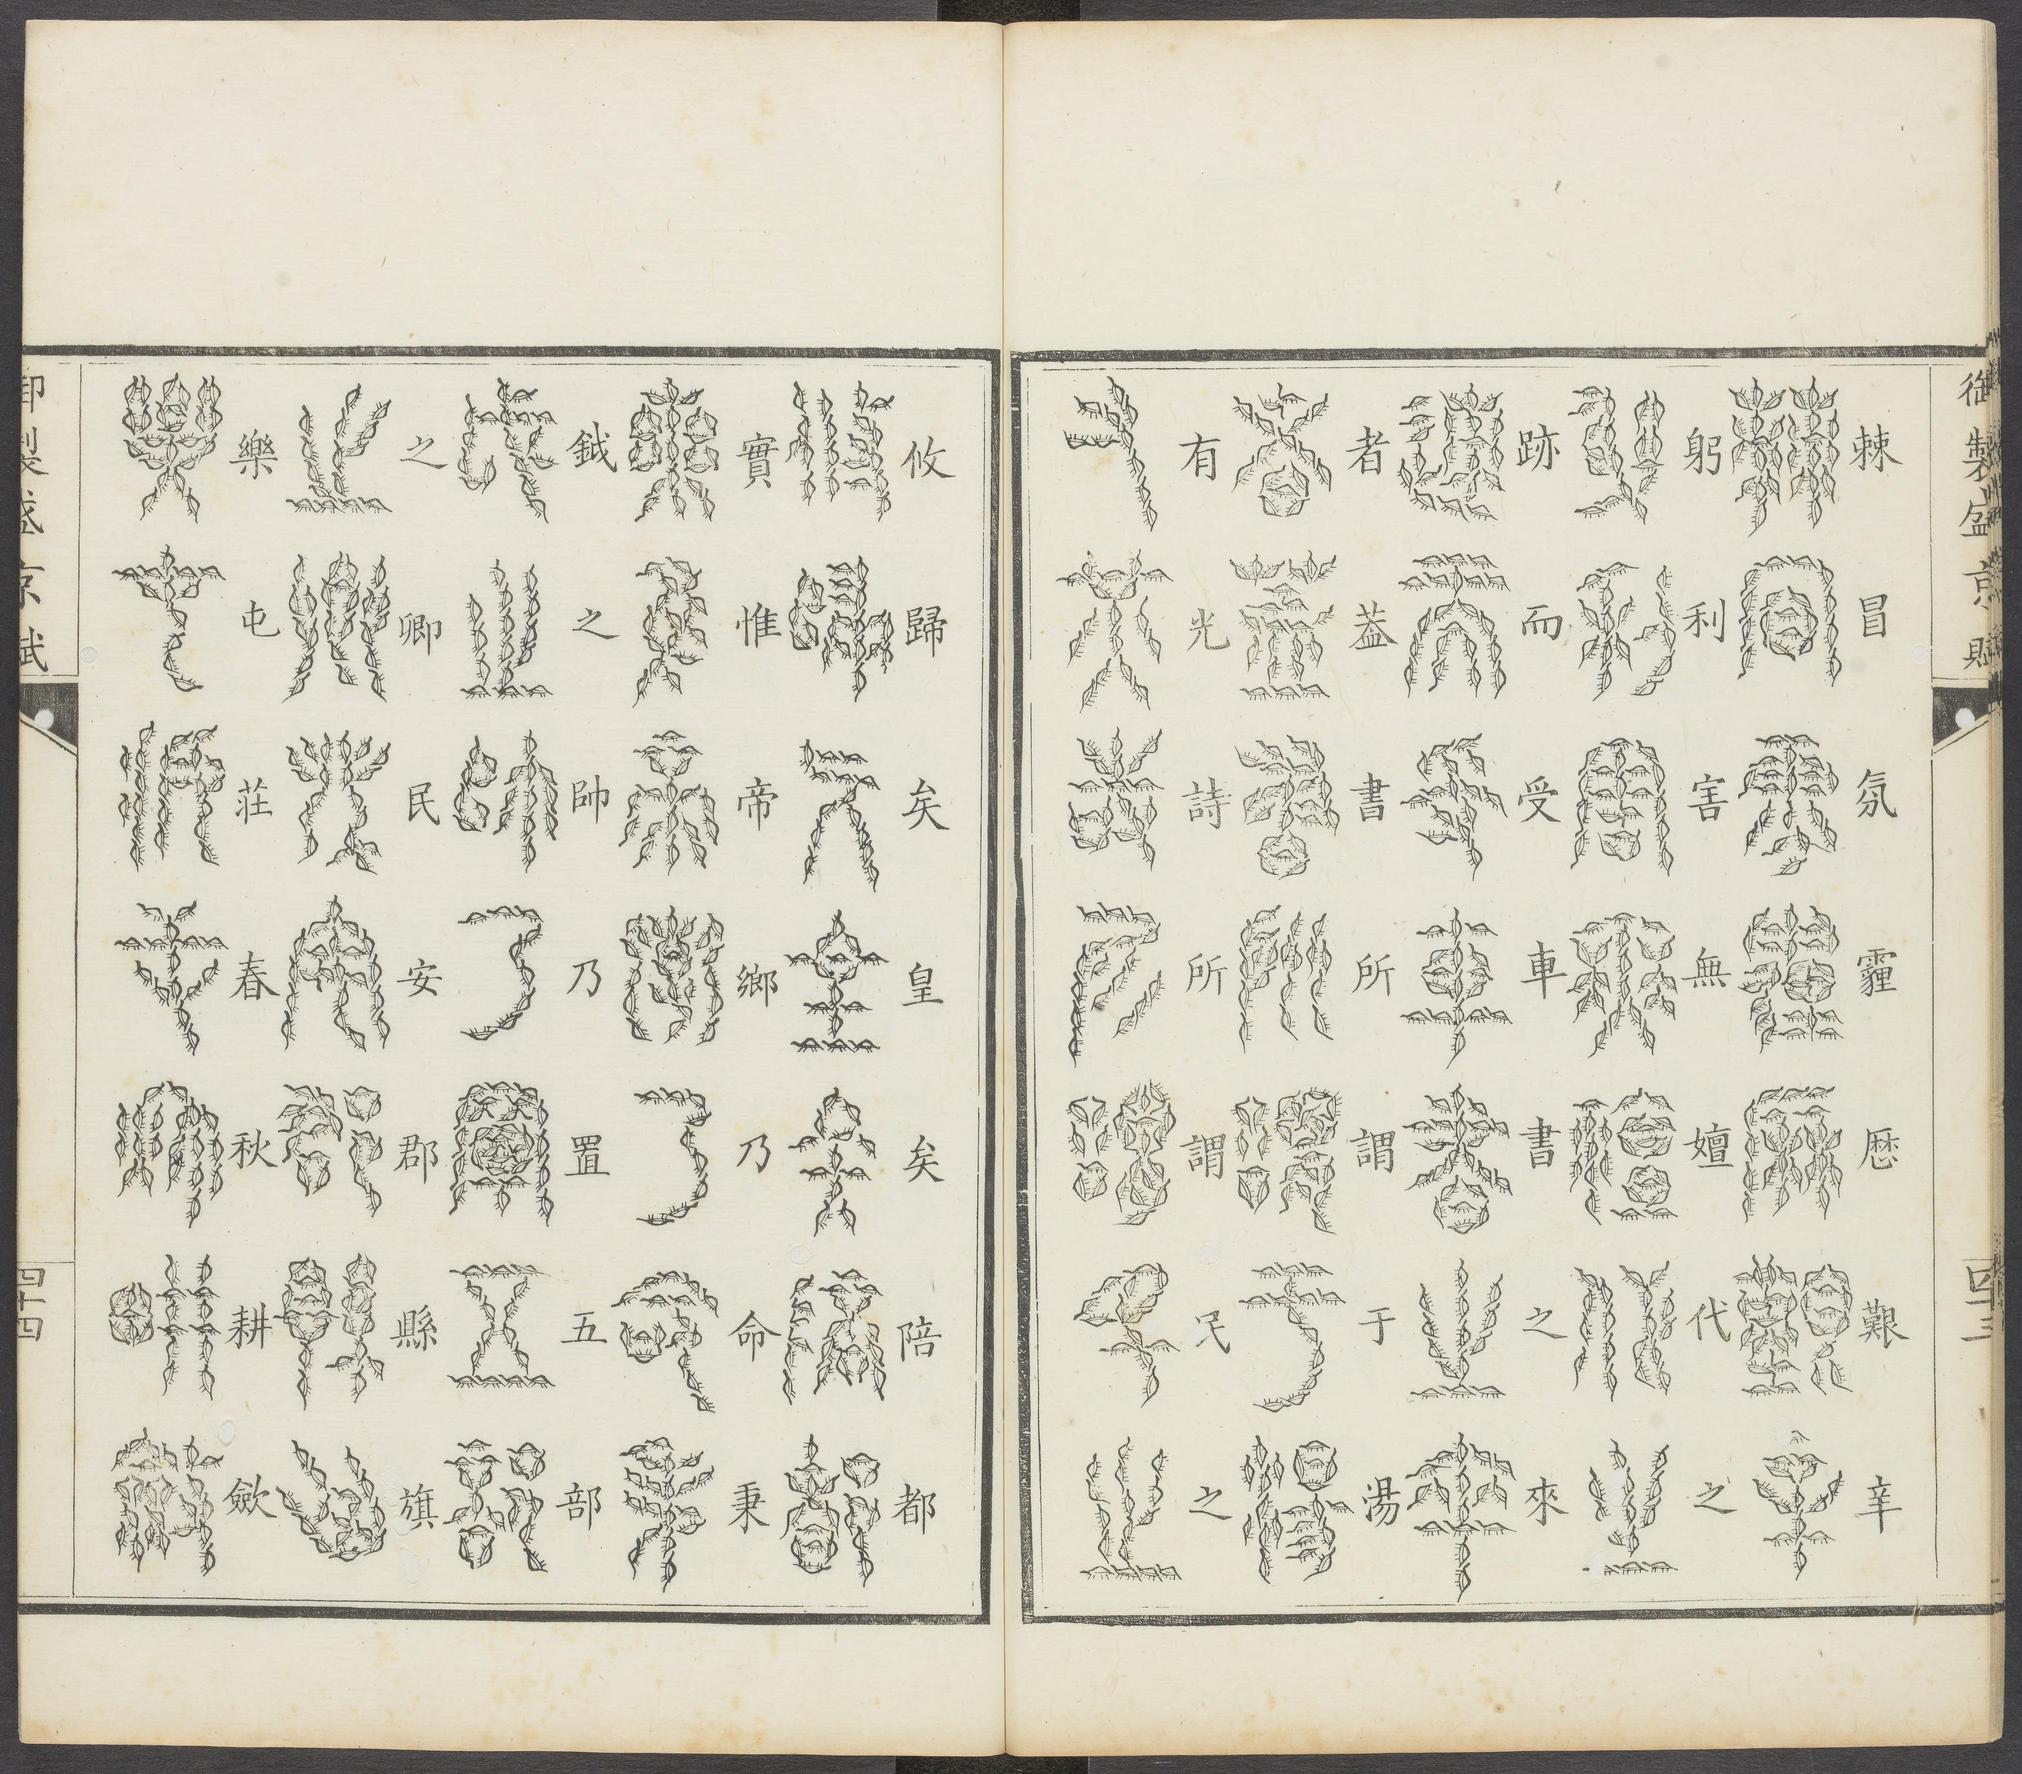 御製盛京賦
四十三
棘冒氛霾厯艱辛
躬利害無嬗代之
跡而受車書之來
者葢書所謂于湯
有光詩所謂民之
攸歸矣皇矣陪都
實惟帝鄉乃命秉
鉞之帥乃置五部
之卿民安郡縣旗
樂屯莊春秋耕歛
御製盛京賦
四十四